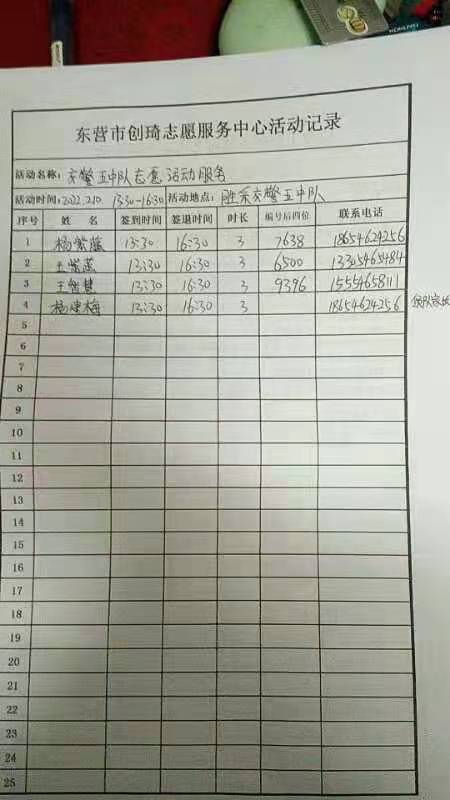 东营市创琦志愿服务中心活动记录
活动名称：交警五中队志愿活动服务
活动时间：2022.2.10 13:30-16:30 活动地点：胜采交警五中队
序号 姓 名 签到时间 签退时间 时长 编号后四位 联系电话
1 杨紫 13:30 16:30 3 7638 18654624256
2 王紫 13:30 16:30 3 6500 13305465484
3 王紫慧 13:30 16:30 3 9396 15554658111
4 杨建梅 13:30 16:30 3 18654624256 领队家长
5
6
7
8
9
10
11
12
13
14
15
16
17
18
19
20
21
22
23
24
25